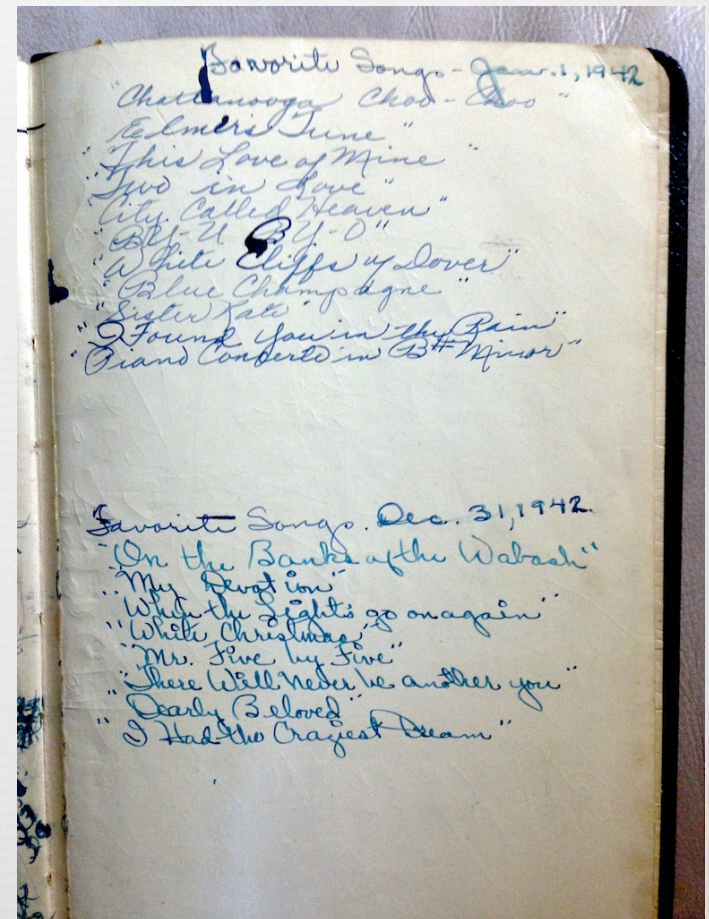 Favorite Songs - Jan. 1, 1942
"Chattanooga Choo-Choo"
"Elmer's Tune"
"This Love of Mine"
"Two in Love"
"City Called Heaven"
"BY-U BY-O"
"White Cliffs of Dover"
"Blue Champagne"
"Sister Kate"
"I Found You in the Rain"
"Piano Concerto in B# Minor"
Favorite Songs. Dec. 31, 1942.
"On the Banks of the Wabash"
"My Devotion"
"When the Lights go on again"
"White Christmas"
"Mr. Five by Five"
"There Will Never be another you"
"Dearly Beloved"
"I Had the Craziest Dream"